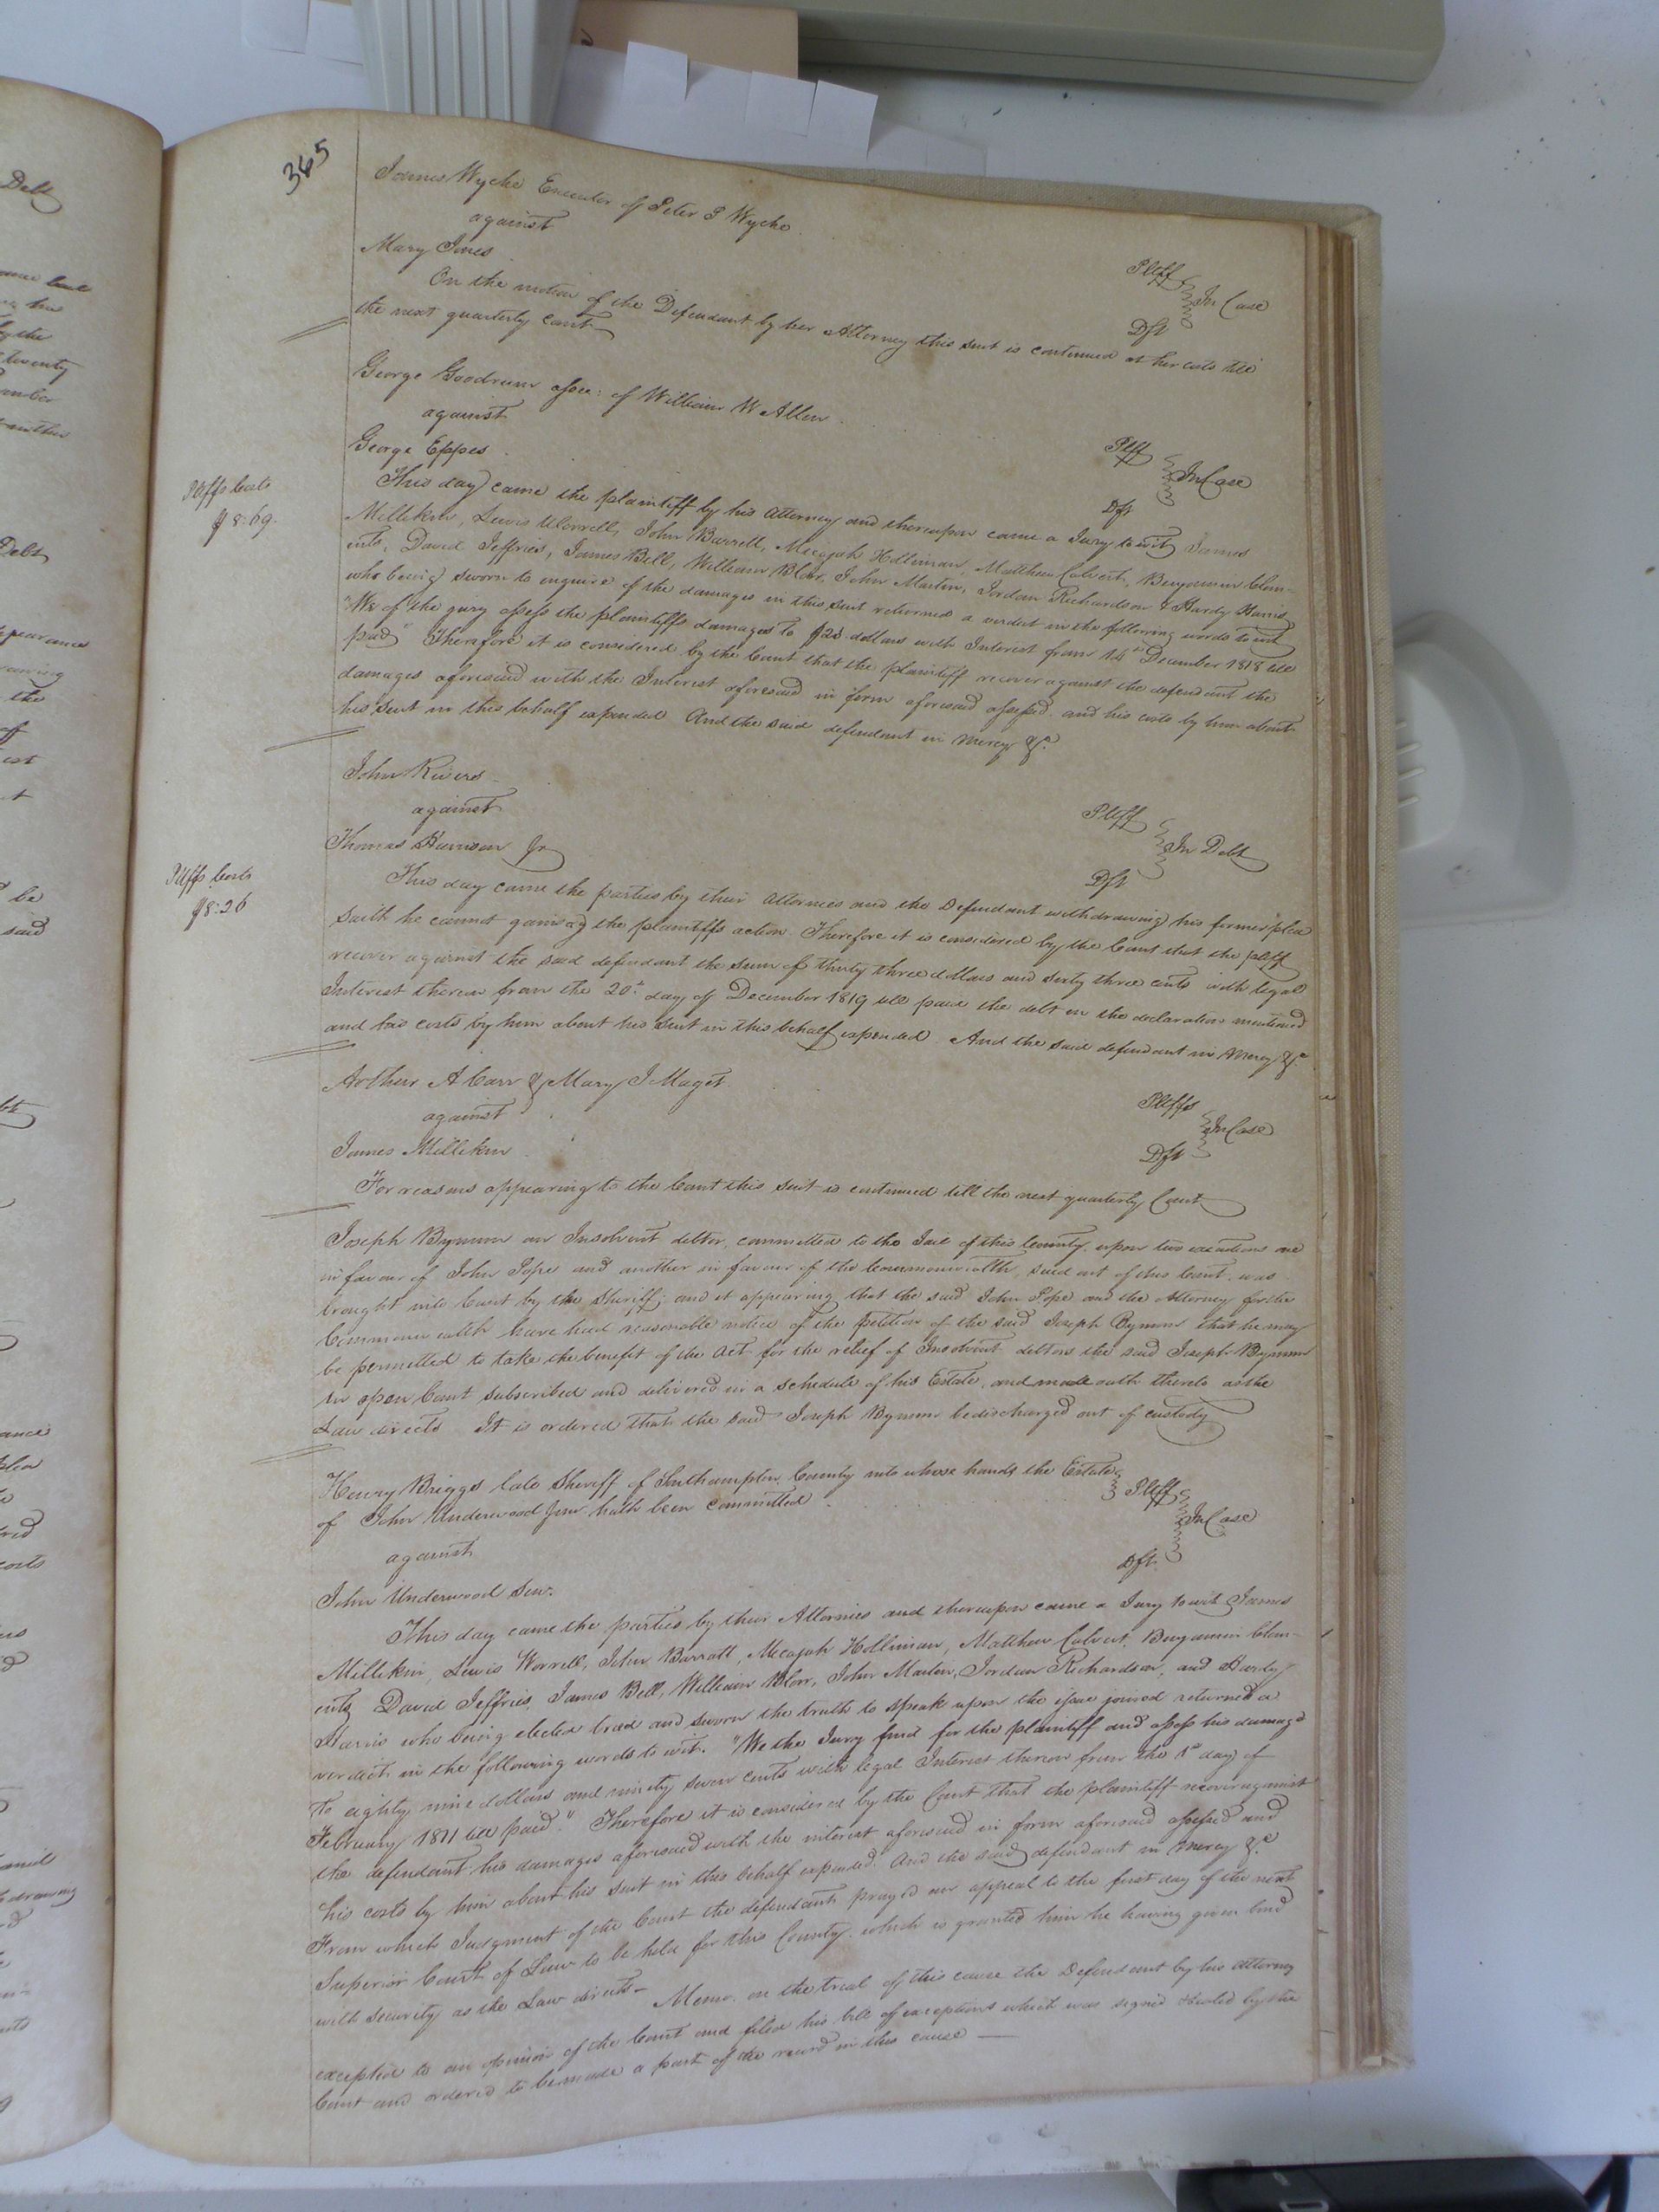 365
James Wyche Executor of Peter P Wyche Pltff
against In Case
Mary Jones Dft
On the motion of the Defendant by her Attorney this suit is continued at her costs till
the next quarterly Court
George Goodrum assee: of William W Allen Pltff
against In Case
George Eppes Dft
Pltffs Costs
$8:69.
This day came the plaintiff by his attorney and thereupon came a Jury to wit, James
Millikin, Lewis Worrell, John Barrett, Micajah Holliman, Matthew Calvert, Benjamin Clem-
ents, David Jeffries, James Bell, William Blow, John Martin, Jordan Richardson & Hardy Harris
who being sworn to enquire of the damages in this suit returned a verdict in the following words to wit
"We of the jury assess the plaintiffs damages to $23 dollars with Interest from 14th December 1818 till
paid" Therefore it is considered by the Court that the plaintiff recover against the defendant the
damages aforesaid with the Interest aforesaid in form aforesaid assessed and his costs by him about
his suit in this behalf expended And the said defendant in mercy &c.
John Rivers Pltff
against In Debt
Thomas Harrison Jr Dft
Pltffs Costs
$8:26
This day came the parties by their attornies and the Defendant withdrawing his former plea
saith he cannot gainsay the plaintiffs action. Therefore it is considered by the Court that the pltff
recover against the said defendant the sum of thirty three dollars and sixty three cents with legal
Interest thereon from the 20th day of December 1819 till paid the debt in the declaration mentioned
and his costs by him about his suit in this behalf expended. And the said defendant in mercy &c
Arthur A Carr & Mary J Maget Pltffs
against In Case
James Millikin Dft
For reasons appearing to the Court this suit is continued till the next quarterly Court
Joseph Bynum an Insolvent debtor, committed to the Jail of this County, upon two executions one
in favour of John Pope and another in favour of the Commonwealth, sued out of this Court, was
brought into Court by the Sheriff; and it appearing that the said John Pope and the Attorney for the
Commonwealth have had reasonable notice of the petition of the said Joseph Bynum that he may
be permitted to take the benefit of the act for the relief of Insolvent debtors the said Joseph Bynum
in open Court subscribed and delivered in a schedule of his Estate, and made oath thereto as the
Law directs It is ordered that the said Joseph Bynum be discharged out of custody
Henry Briggs late Sheriff of Southampton County into whose hands the Estate Pltff
of John Underwood Junr hath been committed In Case
against Dft.
John Underwood Senr.
This day came the parties by their Attornies and thereupon came a Jury to wit James
Millikin, Lewis Worrell, John Barratt, Micajah Holliman, Matthew Calvert, Benjamin Clem-
ents, David Jeffries, James Bell, William Blow, John Martin, Jordan Richardson, and Hardy
Harris who being elected tried and sworn the truth to speak upon the issue joined returned a
verdict in the following words to wit. "We the Jury find for the plaintiff and assess his damages
to eighty nine dollars and ninety seven cents with legal Interest thereon from the 1st day of
February 1811 till paid." Therefore it is considered by the Court that the plaintiff recover against
the defendant his damages aforesaid with the interest aforesaid in form aforesaid assessed and
his costs by him about his suit in this behalf expended. And the said defendant in mercy &c
From which Judgment of the Court the defendant pray'd an appeal to the first day of the next
Superior Court of Law to be held for this County. which is granted him he having given bond
with security as the Law directs- Memo. on the trial of this cause the Defendant by his attorney
excepted to an opinion of the Court and filed his bill of exceptions which was signed & sealed by the
Court and ordered to be made a part of the record in this cause —